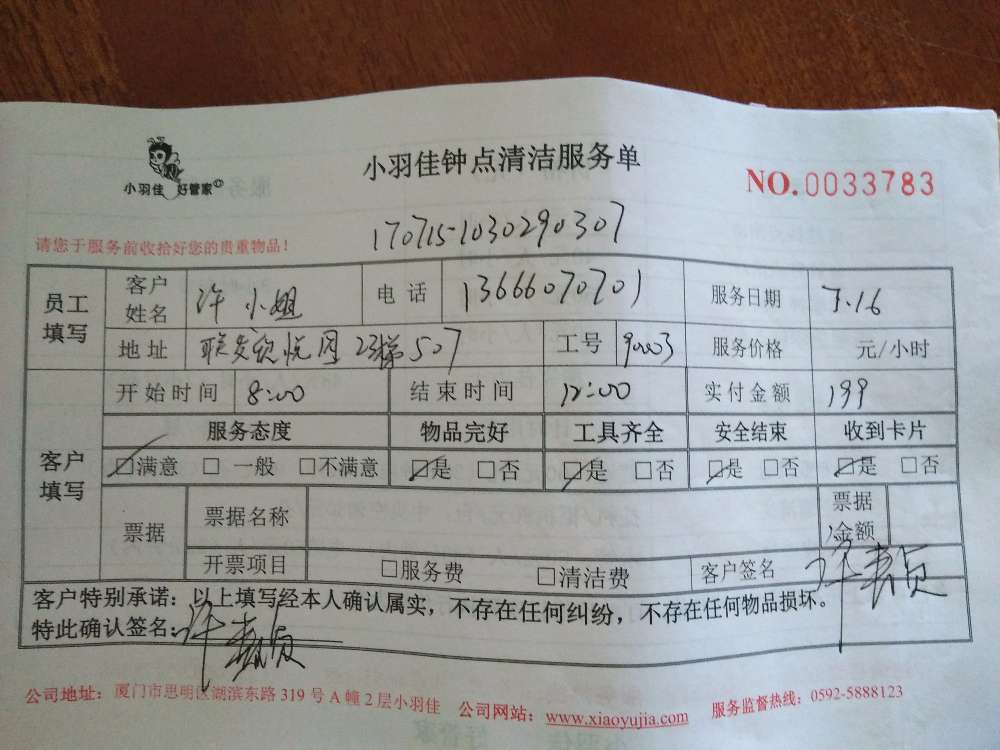 小羽佳 好管家©
小羽佳钟点清洁服务单
NO.0033783
170715-1030290307
请您于服务前收拾好您的贵重物品！
员工填写 客户姓名 许小姐 电话 13666070701 服务日期 7.16
地址 联发欣悦园23梯507 工号 90003 服务价格 元/小时
客户填写 开始时间 8:00 结束时间 12:00 实付金额 199
服务态度 物品完好 工具齐全 安全结束 收到卡片
☑满意 □一般 □不满意 ☑是 □否 ☑是 □否 ☑是 □否 ☑是 □否
票据 票据名称 票据金额
开票项目 □服务费 □清洁费 客户签名 许
客户特别承诺：以上填写经本人确认属实，不存在任何纠纷，不存在任何物品损坏。
特此确认签名：许
公司地址：厦门市思明区湖滨东路319号A幢2层小羽佳 公司网站：www.xiaoyujia.com 服务监督热线：0592-5888123